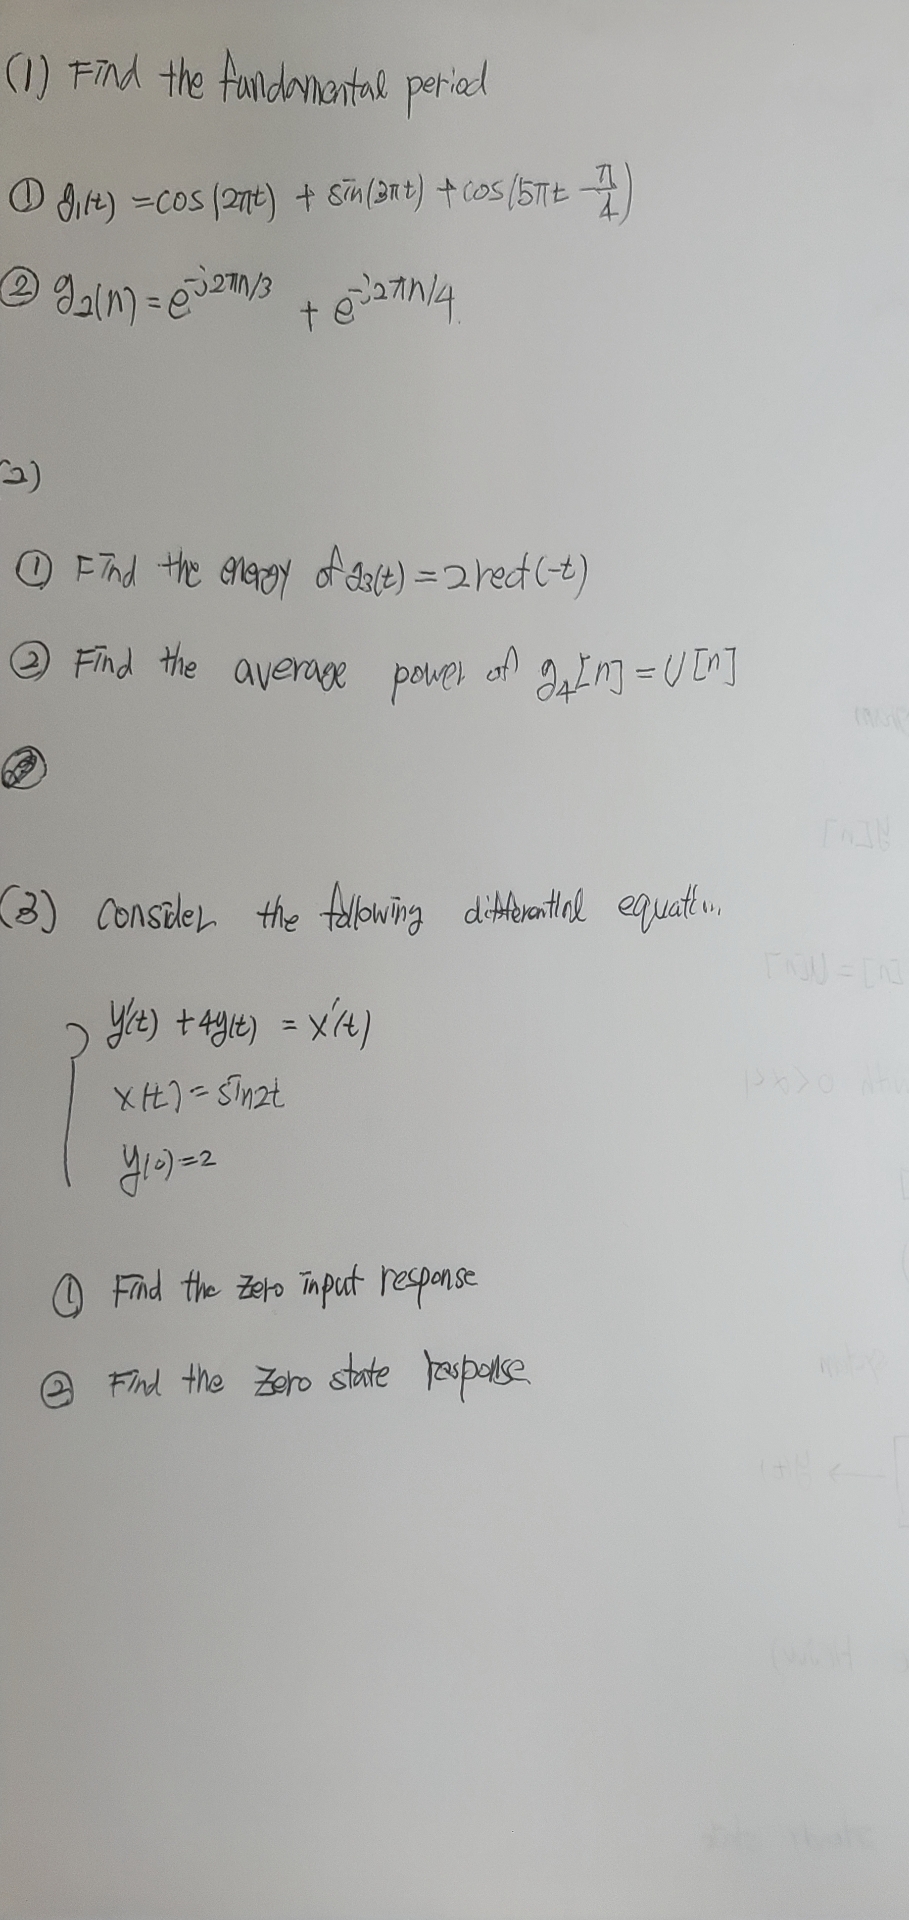 (1) Find the fundamental period
① g₁(t) = cos(2πt) + sin(3πt) + cos(5πt - π/4)
② g₂(n) = e^-j2πn/3 + e^-j2πn/4
(2)
① Find the energy of g₃(t) = 2rect(-t)
② Find the average power of g₄[n] = U[n]
(3) Consider the following
y'(t) + 4y(t) = x'(t)
x(t) = sin2t
y(0) = 2
① Find the zero input response
② Find the zero state response